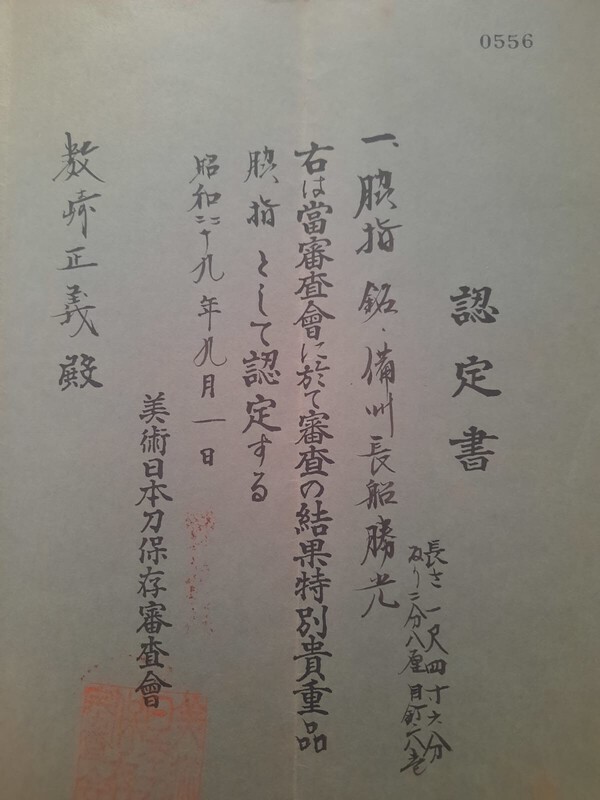 0556
認定書
一、脇指 銘・備州長船勝光
長さ 一尺四寸六分
反り 二分八厘 目釘穴 壱
右は當審査會に於て審査の結果特別貴重品
脇指 として認定する
昭和二十九年九月一日
美術日本刀保存審査會
数崎正義殿